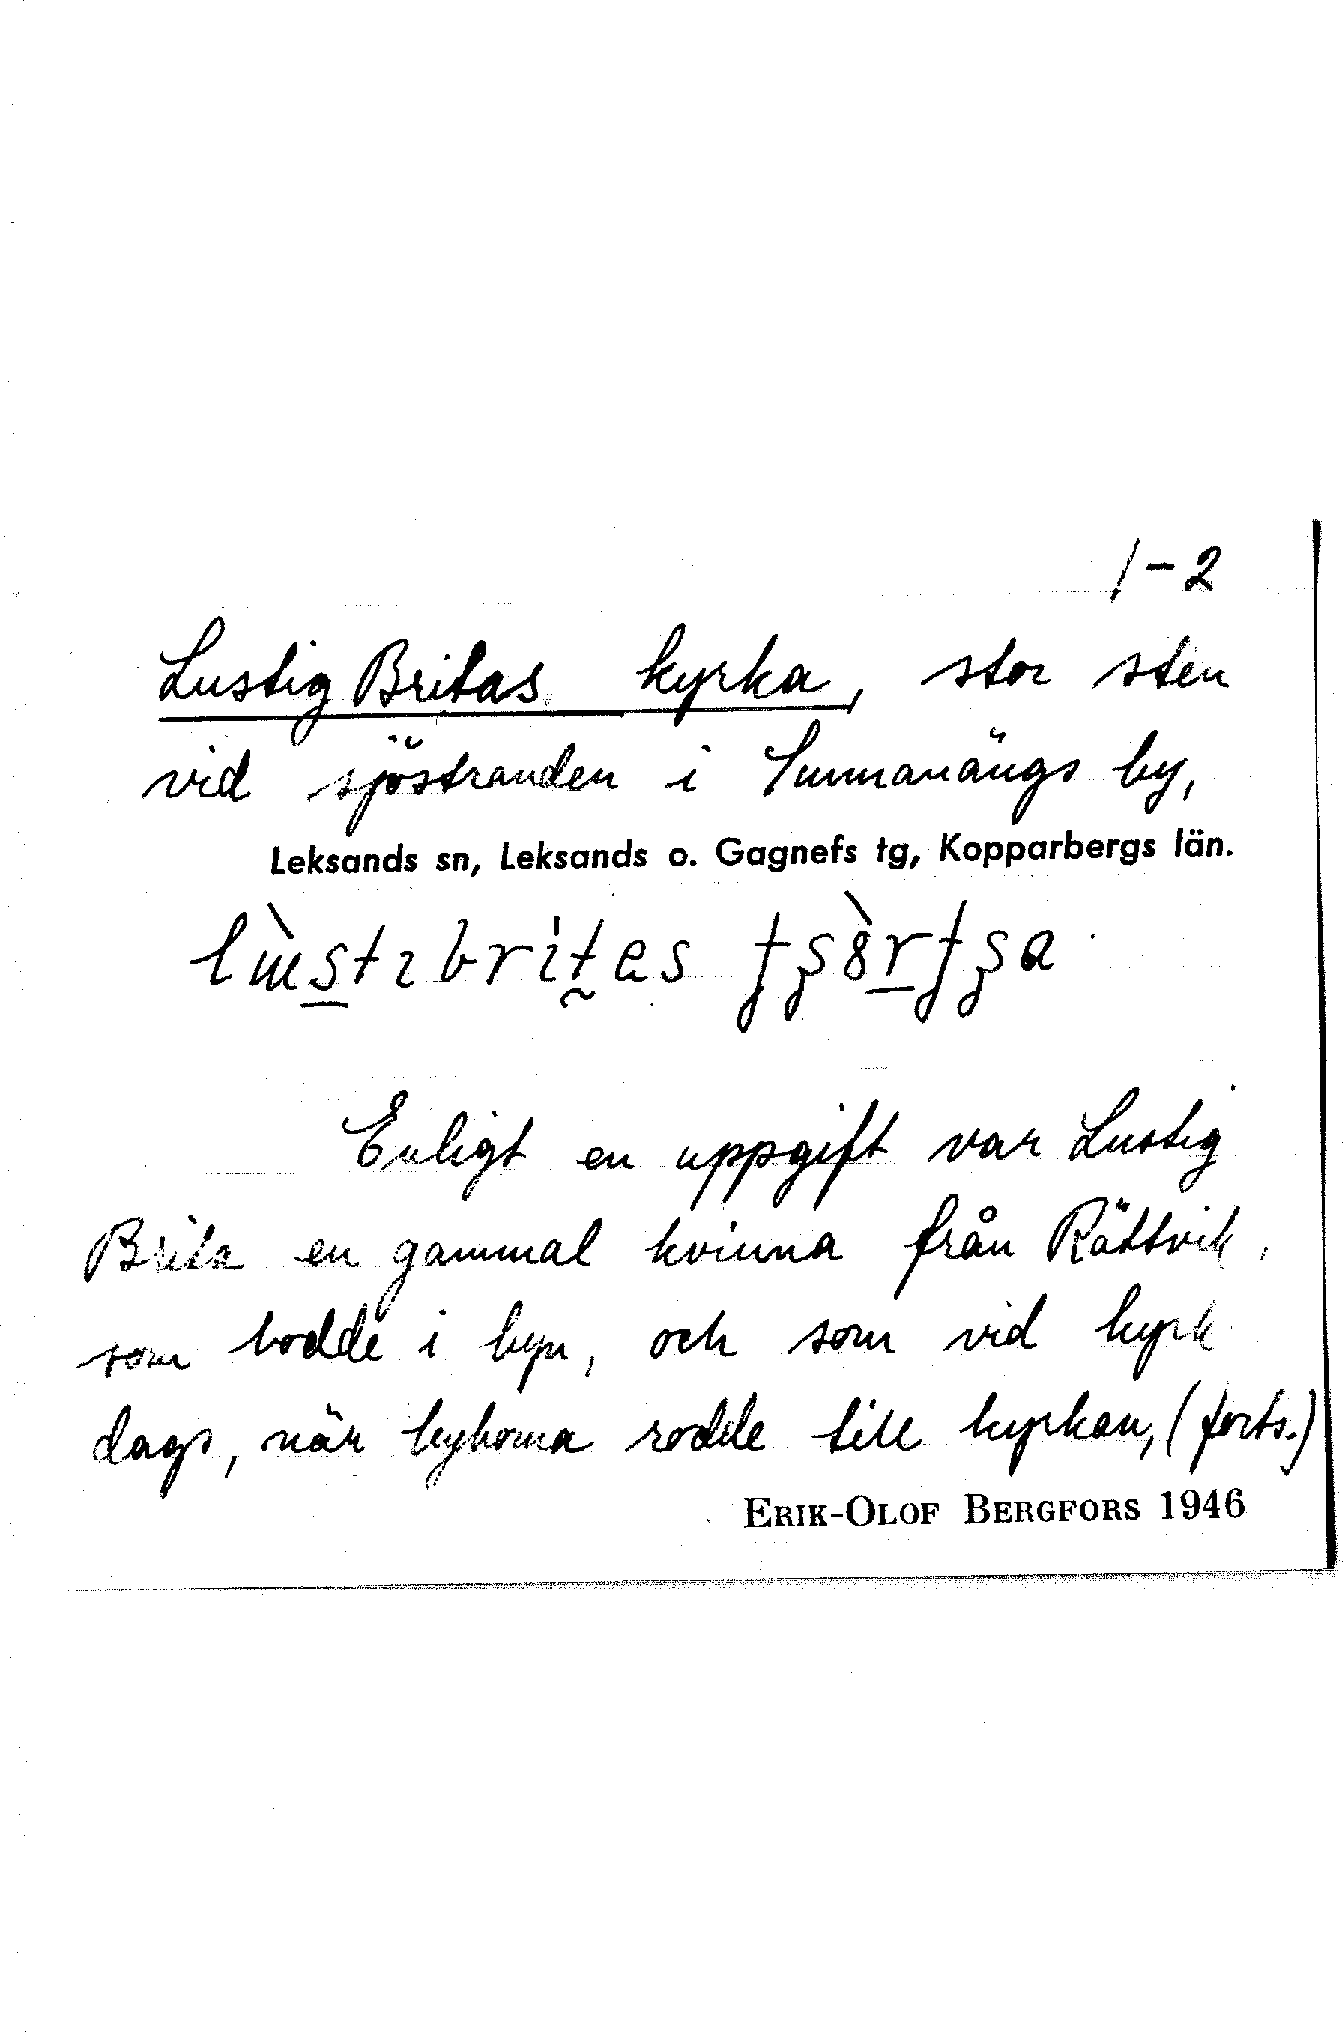 1-2
Lustig Britas kyrka, stor sten
vid sjöstranden i Sunnanängs by,
Leksands sn, Leksands o. Gagnefs tg, Kopparbergs län.
Enligt en uppgift var Lustig
Brita en gammal kvinna från Rättvik,
som bodde i byn, och som vid kyrk
dags, när byborna rodde till kyrkan, (forts.)
ERIK-OLOF BERGFORS 1946